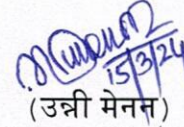 15/3/24
(उन्नी मेनन)